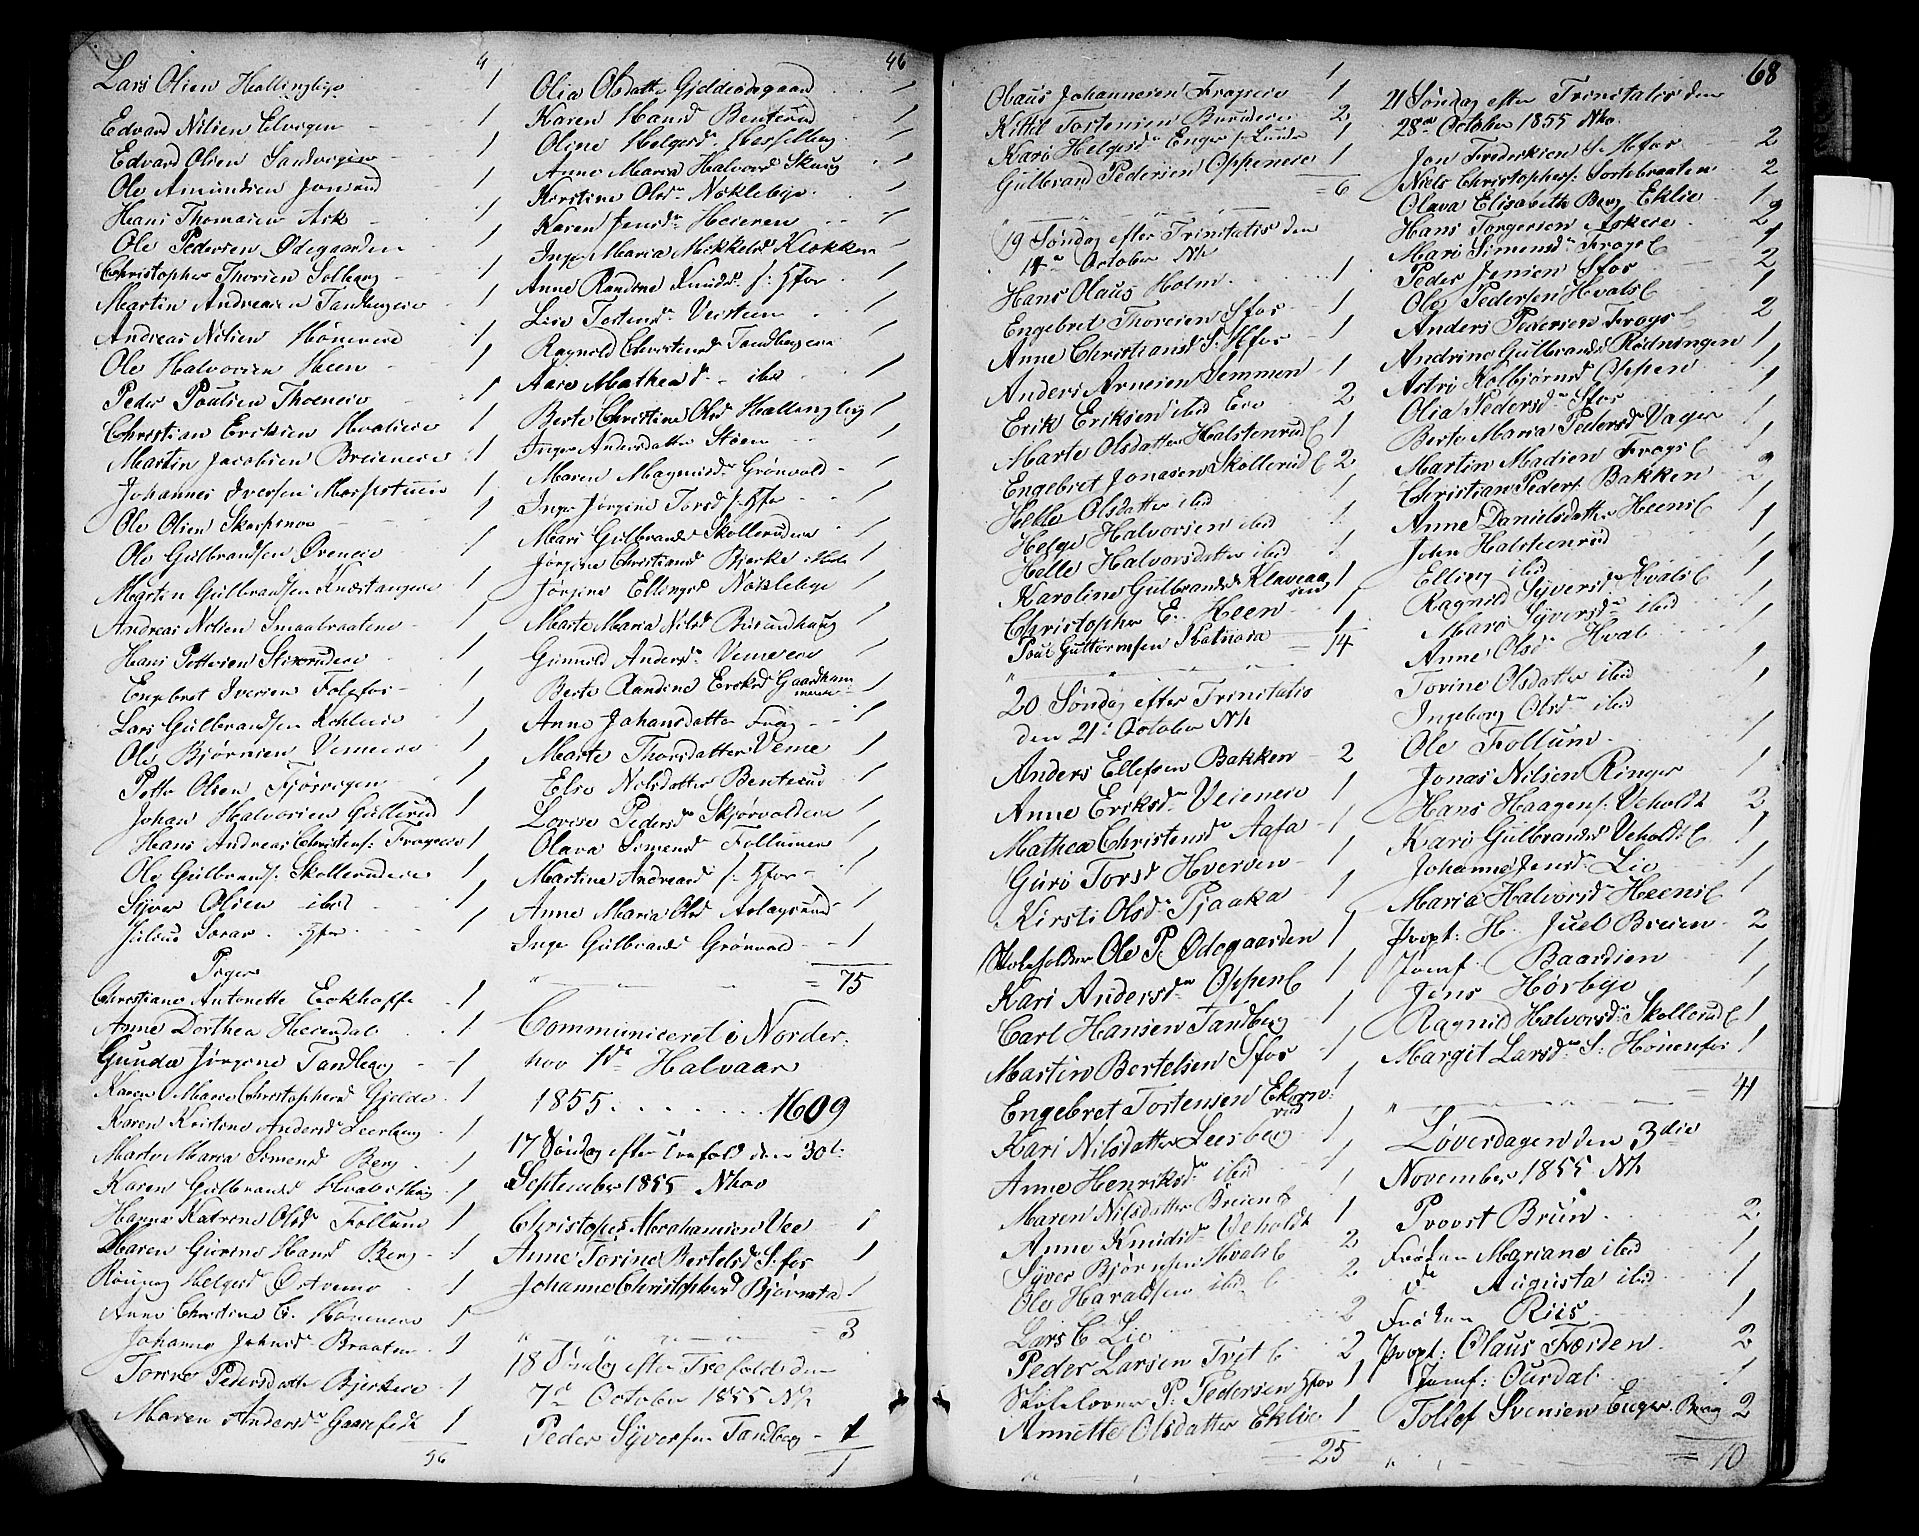 Lars Olsen Hallingbye 1
Edvard Nilsen Elvigen - 1
Edvard Olsen Sandvigen - 1
Ole Amundsen Jonsrud 1
Hans Thomasen Ask - 1
Ole Pedersen Ødegaarden 1
Christopher Thorsen Solberg - 1
Martin Andreasen Tandbergeie 1
Andreas Nilsen Høneneie 1
Ole Halvorsen Heen - 1
Peder Poulsen Thoeneie - 1
Christian Eriksen Hvaleeie 1
Martin Jacobsen Breieneie 1
Johannes Iversen 1
Ole Olsen Skarpsnoe - 1
Ole Gulbrandsen Øreneie 1
Marten Gulbrandsen Knæstangeie 1
Andreas Nilsen Smaabraatene 1
Hans Pettersen 1
Engebret Iversen Follefos - 1
Lars Gulbrandsen 1
Ole Bjørnsen Vemeeie 1
Petter Olsen Fjøsvigen - 1
Johan Halvorsen Gullerud 1
Hans Andreas Christens: Frogeeie 1
Ole Gulbrands: Skollerudeie 1
Syver Olsen ibid - 1
Julius 1
Piger
Christiane Antonette Eckhoffe 1
Anne Dorthea Heierdal 1
Gunda Jørgine Tandberg 1
Karen Marie Christophersd Gjelde 1
Karen Kristine Andersd Leerberg 1
Marte Maria Simensd Berg 1
Karen Gulbrandsd 1
Hanna Katrine Olsd Follum 1
Maren Gurine Hansd Berg 1
Rønnog Helgesd Østveme 1
Anne Christine G. Høneneie 1
Johanne Johnsd Braaten 1
Torine Pedersdatter Bjerkeie 1
Maren Andersd Gaarefeldt 1
46
Olia Olsdatter Gjeldeødegaard 1
Karen Hansd Benterud 1
Oline Helgesd Hesselberg 1
Anne Maria Halvorsd Skaug 1
Kirstine Olsd Nøklebye 1
Karen Jensd Heieren 1
Inge Maria Mikkelsd Klokken 1
Anne Randine Knudsd S: Hfos 1
Lise Torstensd 1
Ragnild Christensd Tandbergeie 1
Aase Mathea d - ibid 1
Berte Christine Olsd Hallingbye 1
Inger Andersdatter Steen 1
Maren Magnusd Grønvold 1
Inger Jørgine Torsd S: Hfos 1
Mari Gulbrandsd Skollerudeie 1
Jørgine Christiansd Bjerke 1
Jørgine Ellingsd Nøklebye 1
Marte Maria Nilsd Busundhaug 1
Gunnild Andersd Vemeeie 1
Berte Randine Eriksd Gaardhammeren 1
Anne Johansdatter Frog 1
Marte Thorsdatter Veme 1
Else Nilsdatter Benterud 1
Lovise Pedersd Skjørvolden 1
Olava Simensd Follumeie 1
Martine Andreasd S: Hfos 1
Anne Maria Olsd Aslagsrud 1
Inge Gulbrandsd Grønvold 1
= 75
Communiceret i Norder-
hov 1ste Halvaar
1855 . . . . . . . 1609
17 Søndag efter Trefold den 30te
September 1855 Nhov
Christopher Abrahamsen Vee 1
Anne Torine Bertelsd S: fos 1
Johanne Christophersd Bjørnsta 1
= 3
18 Søndag efter Trefold: den
7de October 1855 Nh
Peder Syversen Tandberg 1
1
Olaus Johannesen Frogeeie 1
Kittil Torstensen Busundeie 2
Kari Helgesd Enger 1
Gulbrand Pedersen Oppeneie 1
= 6
19 Søndag efter Trinitatis den
14de October Nh
Hans Olaus Holm 1
Engebret Thoresen Sfos 1
Anne Christiansd S: Hfos 1
Anders Arnesen Semmen 1
Erik Eriksen ibid Eie 2
Marte Olsdatter Halstenrud 1
Engebret Jonasen Skollerud 2
Helle Olsdatter ibid 1
Helge Halvorsen ibid 1
Helle Halvorsdatter ibid 1
Karoline Gulbrandsd 1
Christopher E. Heen 1
Poul Guttormsen 1
= 14
20 Søndag efter Trinitatis
den 21: October Nh
Anders Ellefsen Bakken 2
Anne Eriksd Veieneie 1
Mathea Christensd Aasa 1
Guri Torsd Hverven 1
Kirsti Olsd Pjaaka 1
Skoleholder Ole P. Ødegaarden 1
Kari Andersd Oppen 1
Carl Hansen Tandberg 1
Martin Bertelsen Sfos 1
Engebret Tortensen Ekornrud 1
Kari Nilsdatter Leerberg 1
Anne Henriksd ibid 1
Maren Nilsdatter Breien 1
Anne Knudsd Veholdt 1
Syver Bjørnsen Hval 2
Ole Haraldsen ibid 2
Lars C Lie 2
Peder Larsen Tvet 2
Skolelærer P: Pedersen Hfos 1
Annette Olsdatter Eklie 1
= 25
68
21 Søndag efter Trinitatis den
28de October 1855 Nho.
Jon Frederiksen S: Hfos 2
Niels Christophers: Sortebraaten 2
Olava Elisabeth Berg Eklie 1
Hans Torgersen Askeie 2
Mari Simensd Frogs 1
Peder Jensen Sfos 2
Ole Pedersen Hvals 1
Anders Pedersen Frogs 2
Andrine Gulbrandsd Rødningen 1
Astri Kolbjørnsd Oppen 1
Olia Pedersd Sfos 1
Berte Maria Pedersd Vager 1
Martin Madsen Frogs 1
Christian Peders: Bakken 2
Anne Danielsdatter Heens 1
John Halstenrud 1
Elling ibid 1
Ragnild Syversd Hvals 1
Mari Syversd ibid 1
Anne Olsd Hval 1
Torine Olsdatter ibid 1
Ingeborg Olsd ibid 1
Ole Follum 1
Jonas Nilsen Ringer 1
Hans Haagens: Veholdt 2
Kari Gulbrandsd Veholdt 1
Johanne Jensd Lie 1
Maria Halvorsd Heens 1
Propt: H. Juel Breien 2
Jomf: Baardsen 1
Jens Hørbye 1
Ragnild Halvorsd: Skollerud 1
Margit Larsd S: Hønenfos 1
= 41
Løverdagen den 3die
November 1855 Nh
Provst Brun 2
Frøken Mariane ibid 1
do Augusta ibid 1
Frøken Riis 1
Propt: Olaus Færden 2
Jomf: Ourdal 1
Tollef Svensen Enger 2
= 10